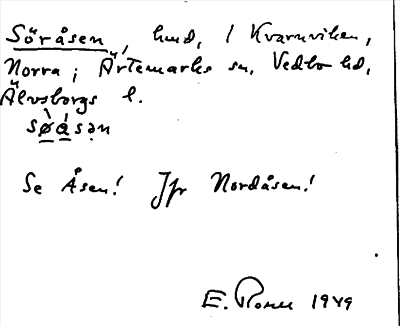 Söråsen, hmd, 1 Kvarnviken,
Norra; Ärtemarks sn, Vedbo hd,
Älvsborgs l.
sø̀ásən
Se Åsen! Jfr Nordåsen!
E. Rosell 1949